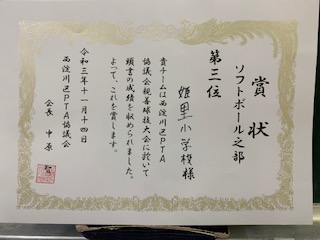 賞状
ソフトボール之部
第三位
姫里小学校様
貴チームは西淀川区PTA
協議会親善球技大会に於いて
頭書の成績を収められました。
よって、これを賞します。
令和三年十一月十四日
西淀川区PTA協議会
会長 中原